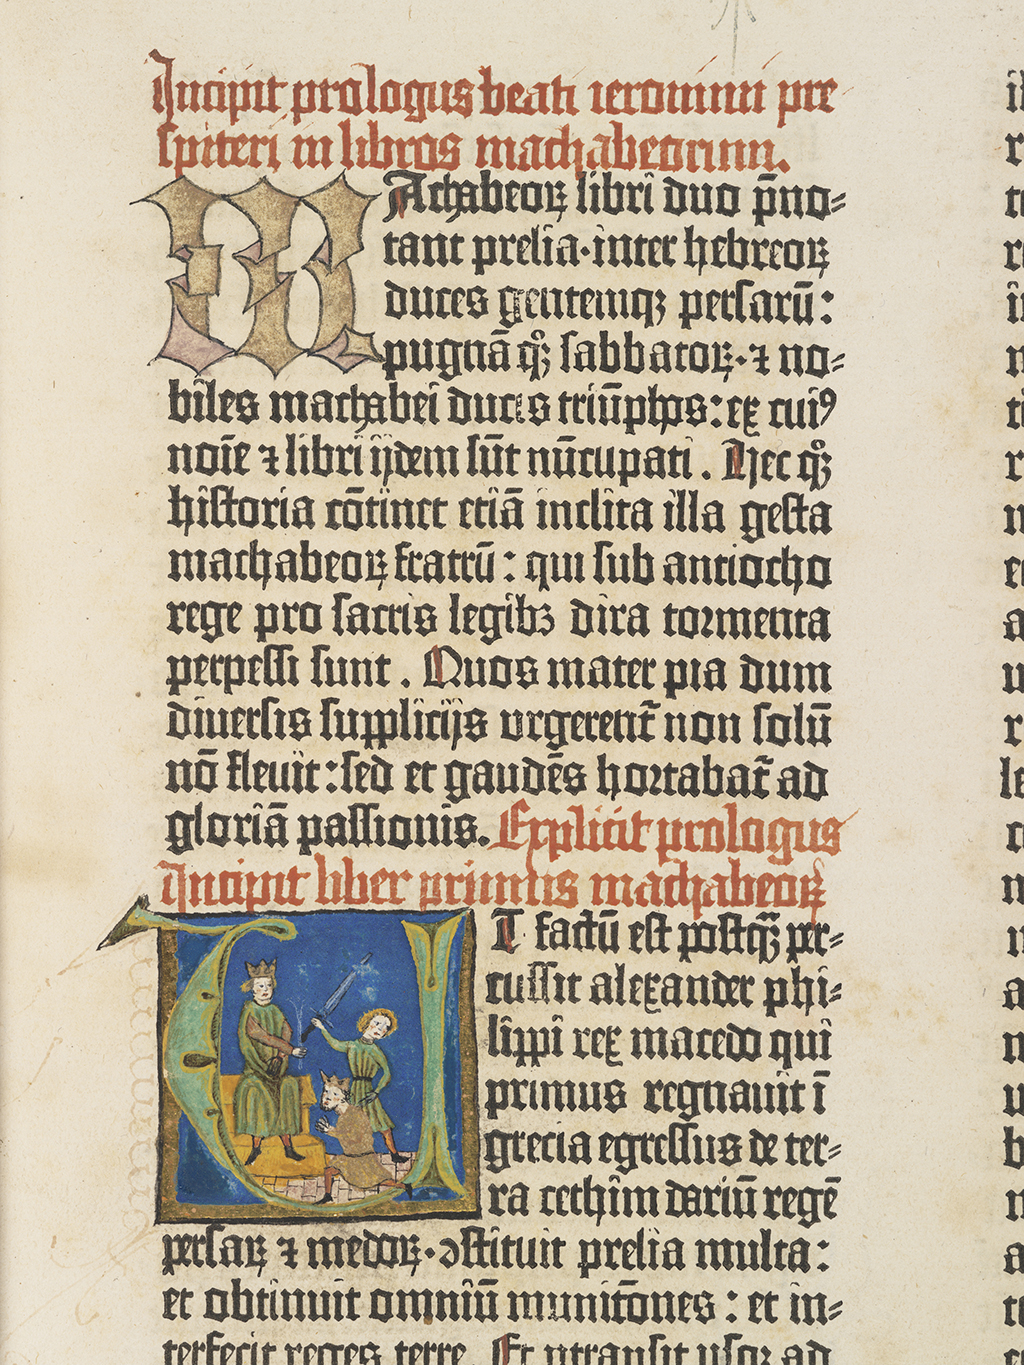 Incipit prologus beati ieronimi pre
spiteri in libros machabeorum.
MAchabeoꝝ libri duo p̄no-
tant prelia·inter hebreoꝝ
duces gentemqꝫ persarū:
pugnā qͦꝫ sabbatoꝝ·⁊ no-
biles machabei ducis triūphos: ex cuiꝰ
noīe ⁊ libri ijdem sūt nūcupati. Hec qͦꝫ
historia cōtinet etiā inclita illa gesta
machabeoꝝ fratrū: qui sub antiocho
rege pro sacris legibꝫ dira tormenta
perpessi sunt. Quos mater pia dum
diuersis supplicijs vrgerent᷑ non solū
nō fleuit: sed et gaudēs hortabat᷑ ad
gloriā passionis. Explicit prologus
Incipit liber primus machabeoꝝ
ET factū est postqꝫ̄ per-
cussit alexander phi-
lippi rex macedo qui
primus regnauit ī
grecia egressus de ter-
ra cethim dariū regē
persaꝝ ⁊ medoꝝ·ꝯstituit prelia multa:
et obtinuit omniū munitōnes: et in-
terfecit reges terre. Et ptransit usqꝫ ad